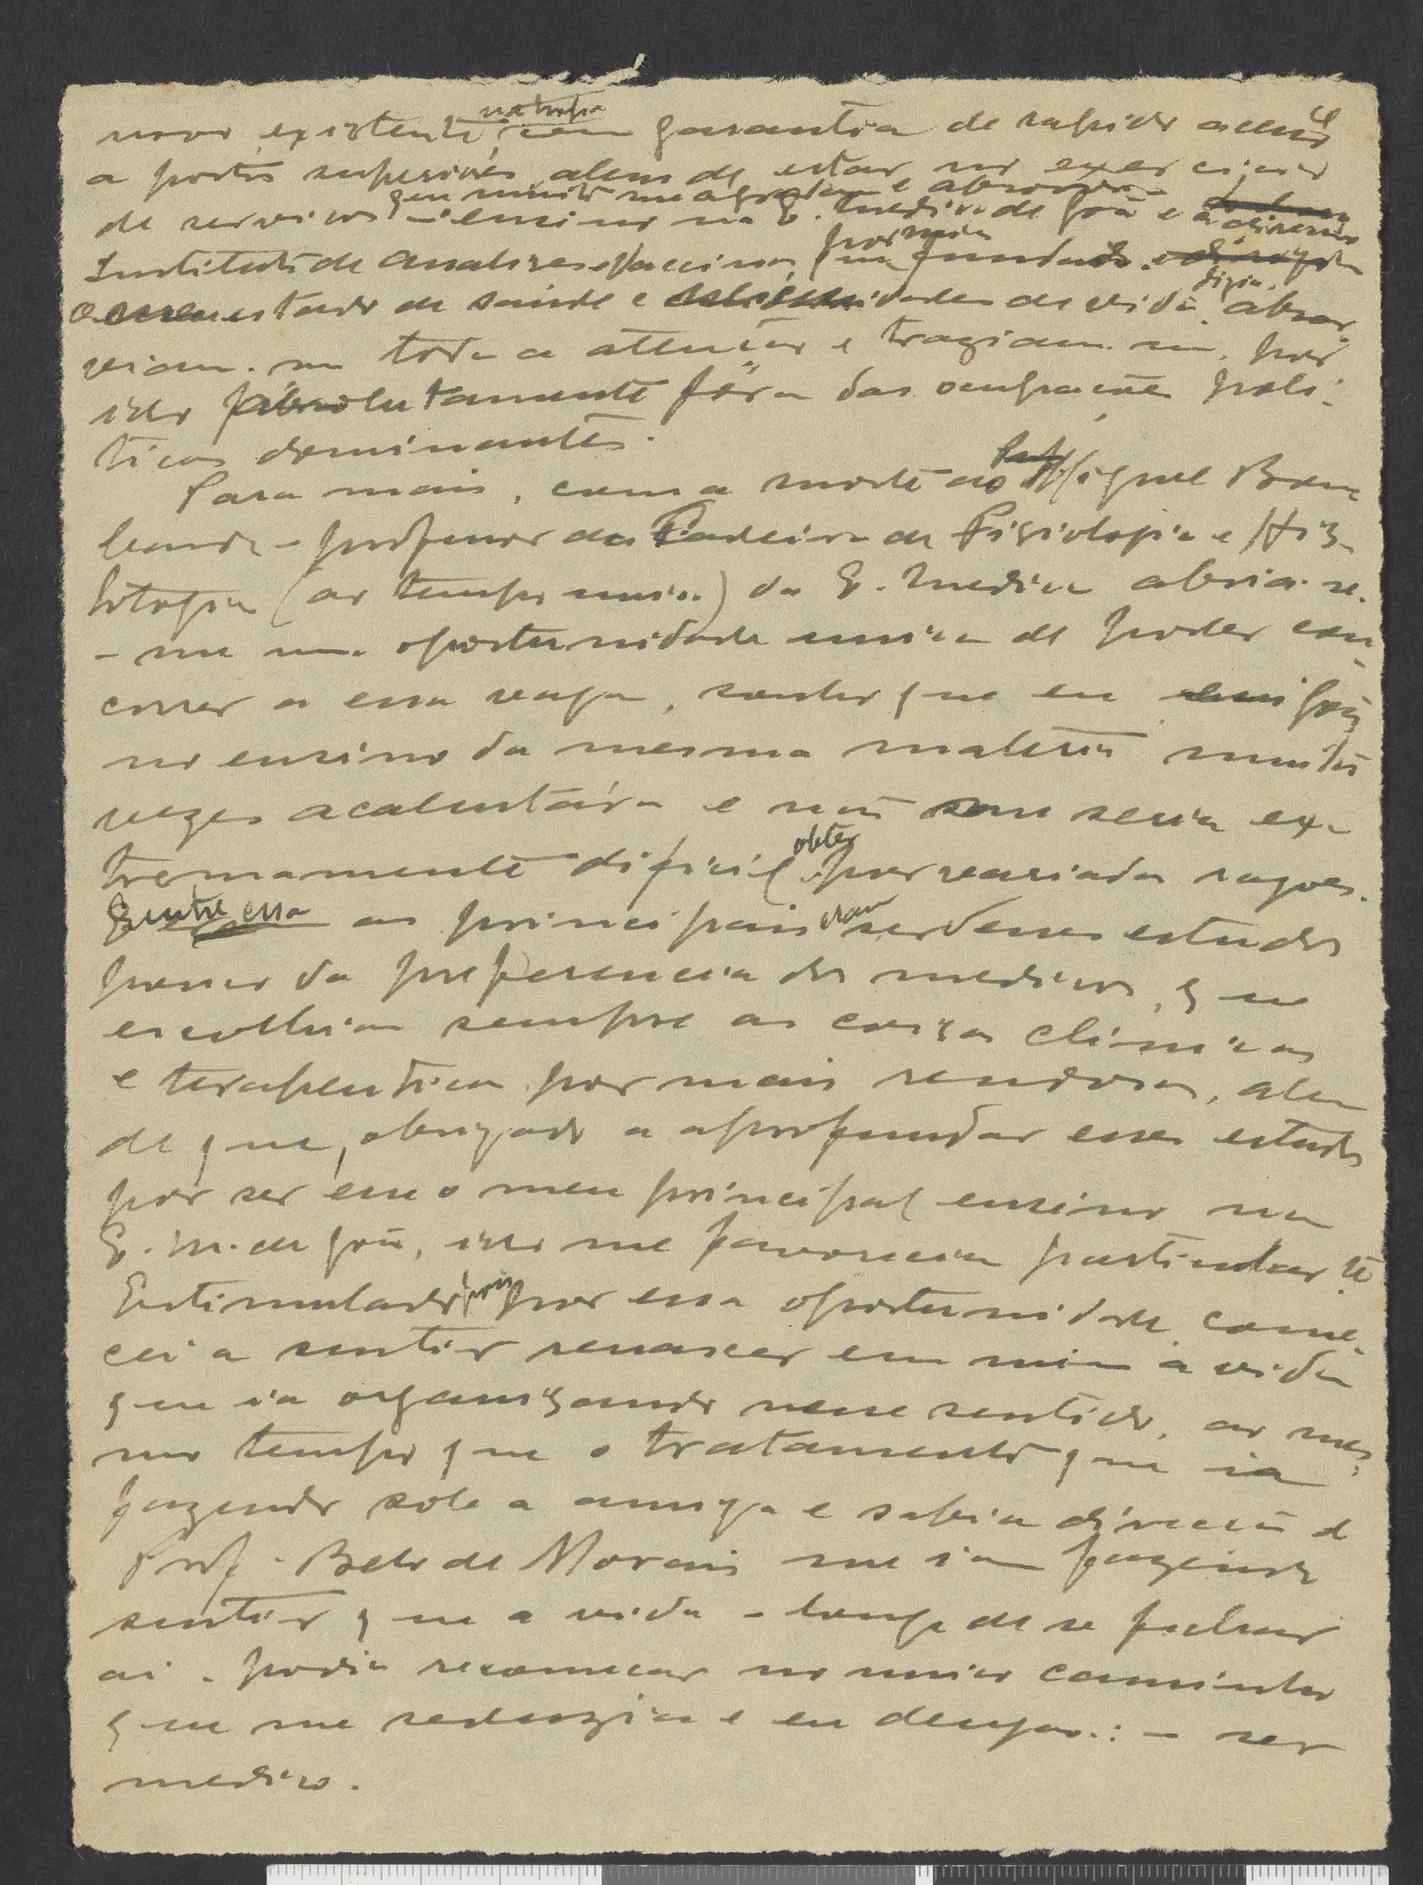 novo existente, na tropa com garantia de rapido acesso
a postos superiores, alem de estar no exercicio
de serviços que muito me agradavam e absorviam
- ensino na E. Medica de Goa e a direcção
Instituto de Analises e Vaccina, por mim fundado e
estado de saúde e da vida, absor
viam-me toda a atenção e traziam-me, por
isso absolutamente fóra das ocupações poli-
ticas dominantes.
Para mais, com a morte do Miguel Bom
barda - professor da Cadeira de Fisiologia e His-
tologia (ao tempo unica) da E. Medica abria-se-
-me uma oportunidade unica de poder con-
correr a essa vaga, sonho que eu em Goa
no ensino da mesma materia muitas
vezes acalentára e não me seria ex-
tremamente dificil obter por variadas razoes.
Entre essas as principais eram ser desses estudos
pouco da preferencia dos medicos, que
escolhiam sempre as coisas clinicas
e terapeuticas por mais rendosas, alem
de que, obrigado a aprofundar esses estudos
por ser esse o meu principal ensino na
E. M. de Goa, isso me favorecia particular te
Estimulado pois por essa oportunidade, come-
cei a sentir renascer em mim a vida
que ia organisando nesse sentido, ao mes-
mo tempo que o tratamento que ia
fazendo sob a amiga e sabia direcção do
Prof. Belo de Morais me iam fazendo
sentir que a vida - longe de se fechar
ai - podia recomeçar no unico caminho
que me seduzia e eu desejava: - ser
medico.